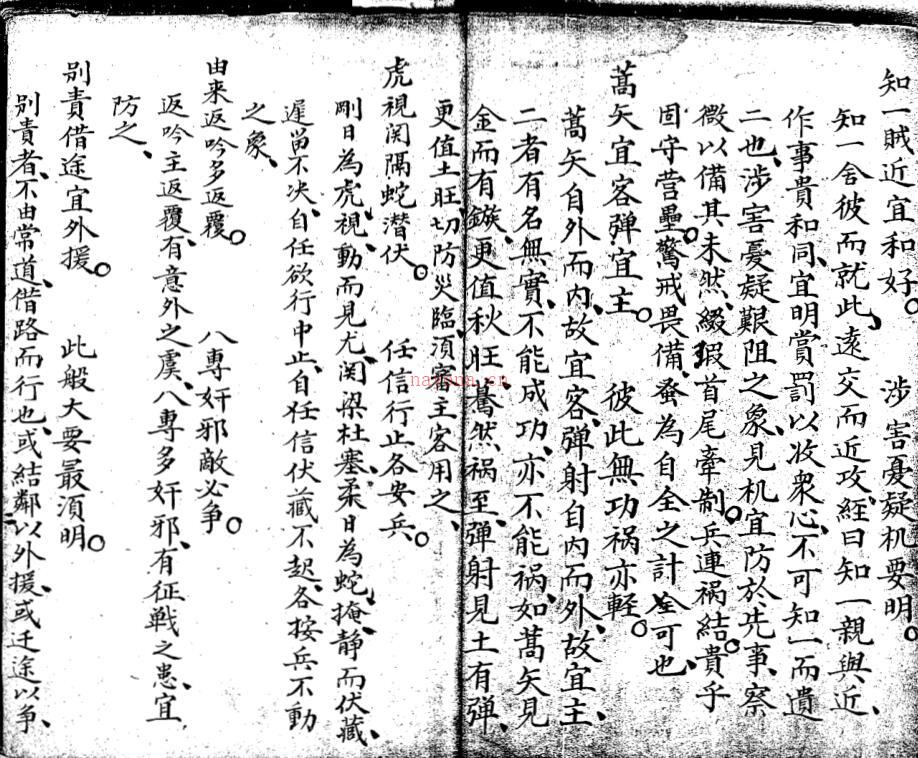 知一賊近宜和好。涉害憂疑机要明。
知一舍彼而就此、遠交而近攻、經曰知一親與近、
作事貴和同、宜明賞罰以收衆心、不可知一而遺
二也、涉害憂疑艱阻之象、見机宜防於先事、察
微以備其未然、綴瑕首尾牽制。兵連禍結。貴乎
固守营壘。驚戒畏備、蚤為自全之計全可也、
蒿矢宜客彈宜主。彼此無功祸亦軽。
蒿矢自外而内、故宜客、彈射自内而外、故宜主、
二者有名無實、不能成功、亦不能祸、如蒿矢見
金而有鏃、更值秋旺驀然祸至、彈射見土有彈、
更值土旺切防災臨、須審主客用之、
虎視関隔蛇潜伏。任信行止各安兵。
剛日為虎視、動而見尤、関梁杜塞、柔日為蛇掩、静而伏藏、
遲留不决、自任欲行中止、自任信伏藏不起、各按兵不動
之象、
由来返吟多返覆。八專奸邪敵必争。
返吟主返覆、有意外之虞、八專多奸邪、有征戦之患、宜
防之、
别責借途宜外援。此般大要最須明。
别責者、不由常道、借路而行也、或結鄰以外援、或迂途以争、
nayuan.cn